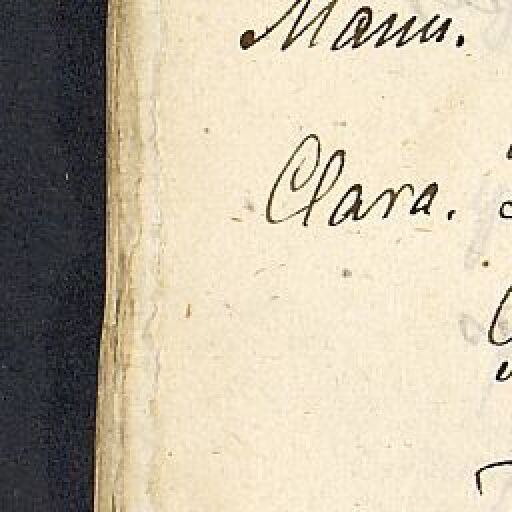 Mann.
Clara.